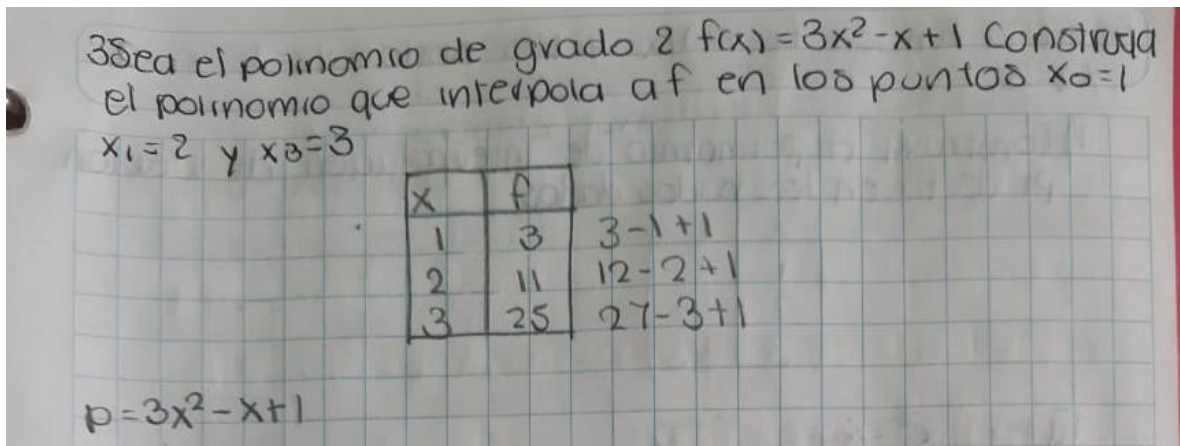 3 Sea el polinomio de grado 2 f(x) = 3x² - x + 1 Construya
el polinomio que interpola a f en los puntos x0 = 1
x1 = 2 y x3 = 3
x f
1 3 3 - 1 + 1
2 11 12 - 2 + 1
3 25 27 - 3 + 1
p = 3x² - x + 1